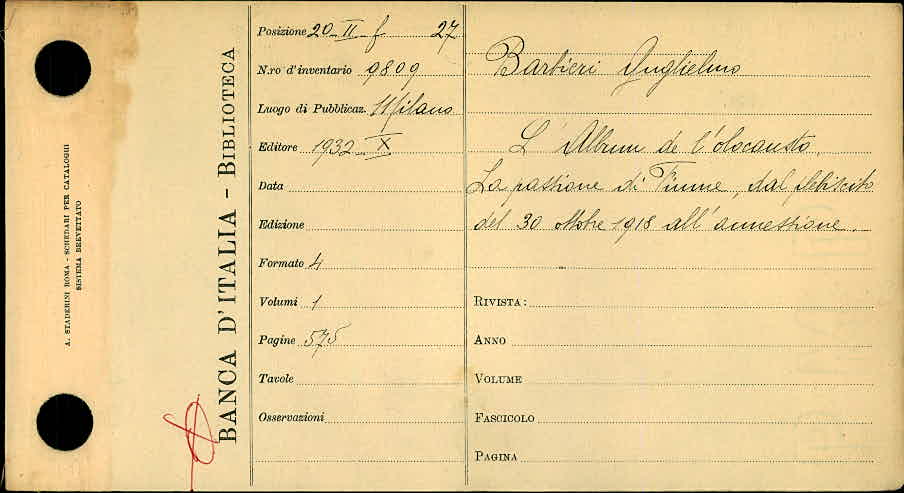 A. STADERINI ROMA - SCHEDARI PER CATALOGHI
SISTEMA BREVETTATO
BANCA D'ITALIA - BIBLIOTECA
Posizione 20 - II - f 27
N.ro d'inventario 9809
Luogo di Pubblicaz. Milano
Editore 1932 - X
Data
Edizione
Formato 4
Volumi 1
Pagine 575
Tavole
Osservazioni
Barbieri Guglielmo
L'Album de l'olocausto.
La passione di Fiume, dal plebiscito
del 30 ottobre 1918 all'annessione.
RIVISTA:
ANNO
VOLUME
FASCICOLO
PAGINA